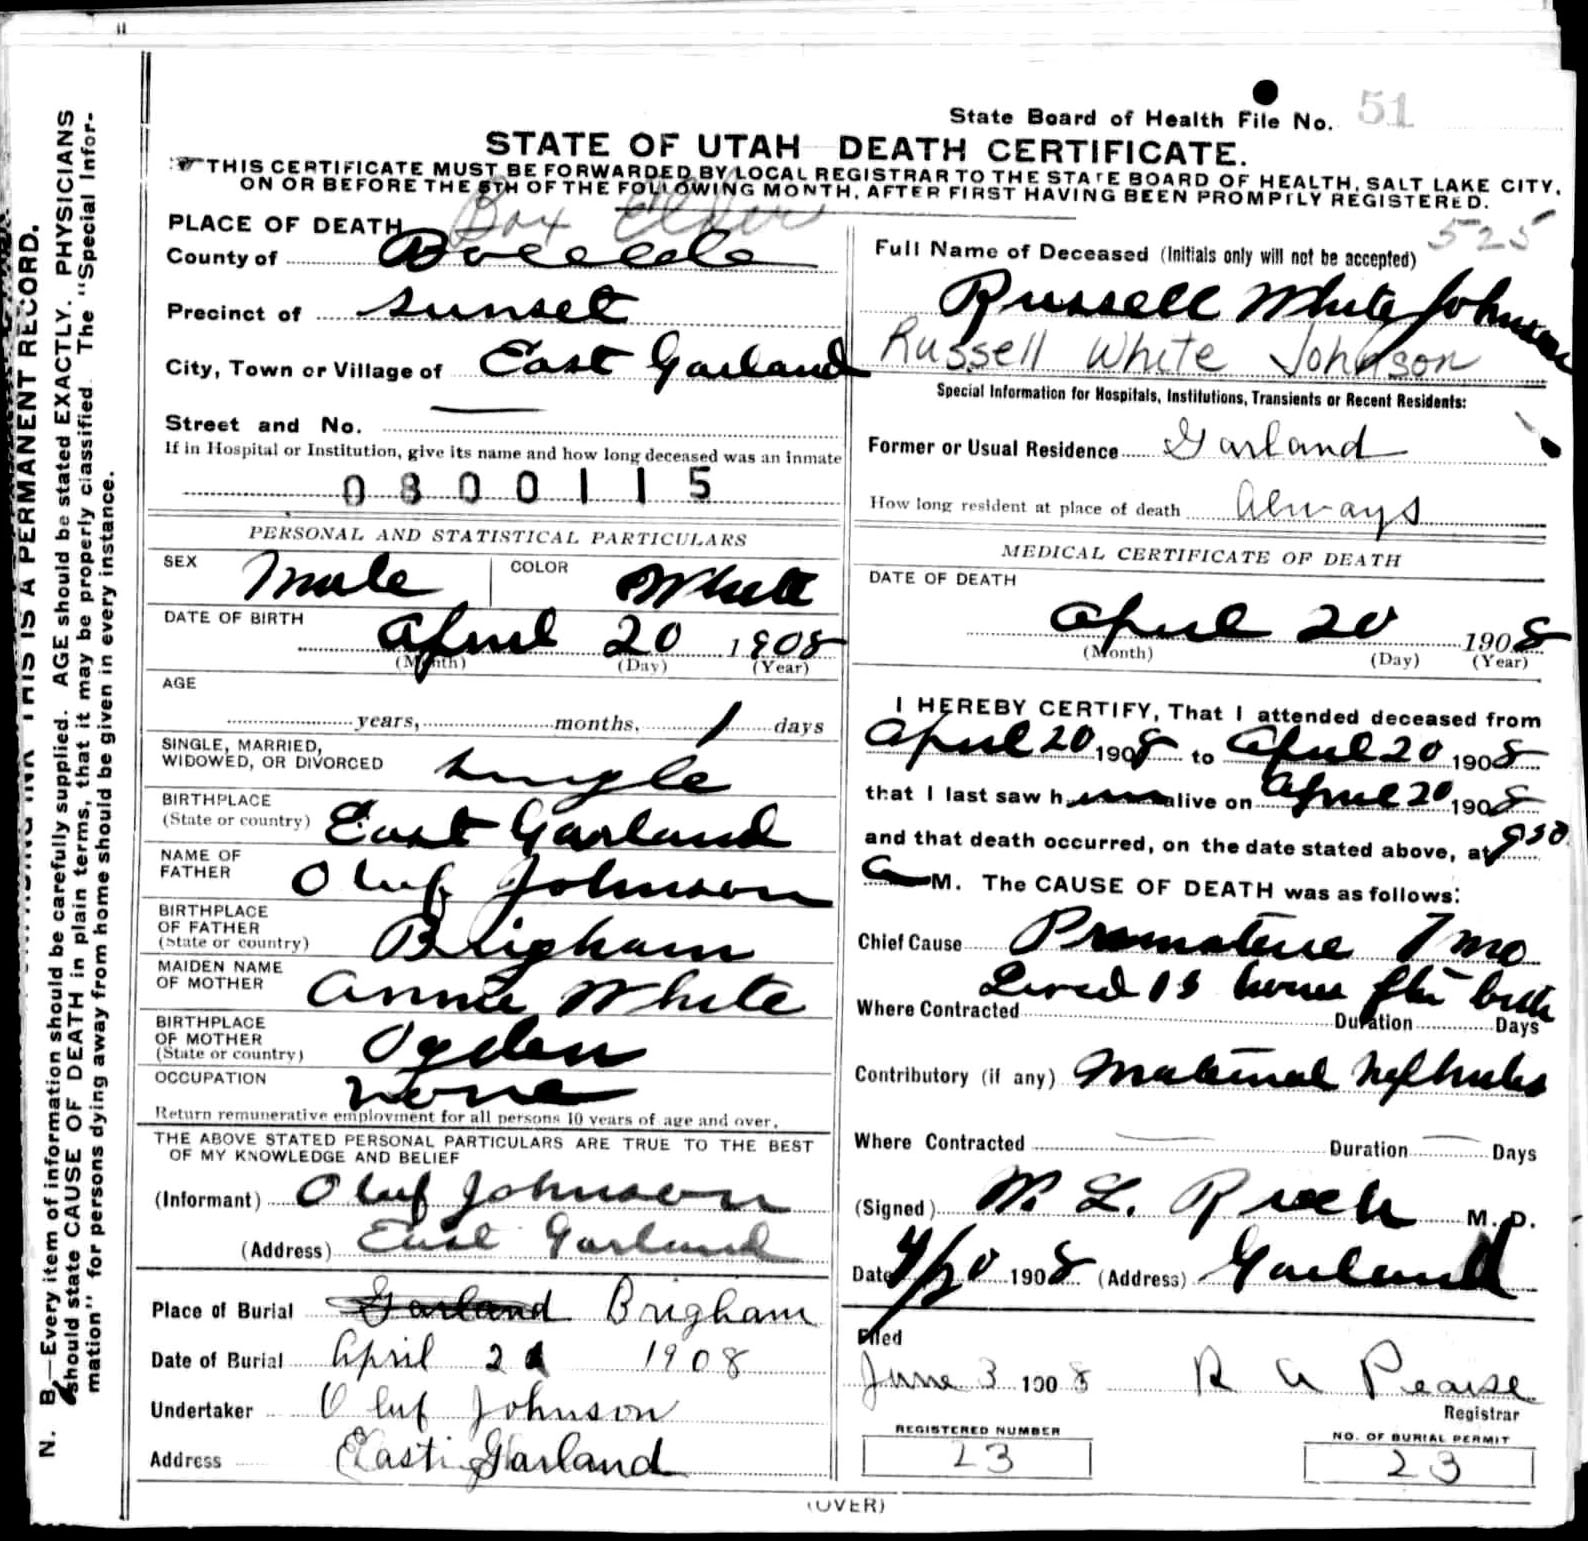 State Board of Health File No. 51
STATE OF UTAH DEATH CERTIFICATE.
THIS CERTIFICATE MUST BE FORWARDED BY LOCAL REGISTRAR TO THE STATE BOARD OF HEALTH, SALT LAKE CITY,
ON OR BEFORE THE 5TH OF THE FOLLOWING MONTH, AFTER FIRST HAVING BEEN PROMPTLY REGISTERED.
525
PLACE OF DEATH Box Elder
County of
Precinct of Sunset
City, Town or Village of East Garland
Street and No.
If in Hospital or Institution, give its name and how long deceased was an inmate
0800115
PERSONAL AND STATISTICAL PARTICULARS
SEX Male COLOR White
DATE OF BIRTH
April 20 1908
(Month) (Day) (Year)
AGE
years, months, 1 days
SINGLE, MARRIED,
WIDOWED, OR DIVORCED single
BIRTHPLACE
(State or country) East Garland
NAME OF
FATHER Oluf Johnson
BIRTHPLACE
OF FATHER
(State or country) Brigham
MAIDEN NAME
OF MOTHER Annie White
BIRTHPLACE
OF MOTHER
(State or country) Ogden
OCCUPATION None
Return remunerative employment for all persons 10 years of age and over.
THE ABOVE STATED PERSONAL PARTICULARS ARE TRUE TO THE BEST
OF MY KNOWLEDGE AND BELIEF
(Informant) Oluf Johnson
(Address) East Garland
Place of Burial Garland Brigham
Date of Burial April 21 1908
Undertaker Oluf Johnson
Address East Garland
Full Name of Deceased (Initials only will not be accepted)
Russell White Johnson
Russell White Johnson
Special Information for Hospitals, Institutions, Transients or Recent Residents:
Former or Usual Residence Garland
How long resident at place of death Always
MEDICAL CERTIFICATE OF DEATH
DATE OF DEATH
April 20 1908
(Month) (Day) (Year)
I HEREBY CERTIFY, That I attended deceased from
April 20 1908 to April 20 1908
that I last saw h alive on April 20 1908
and that death occurred, on the date stated above, at 930
a M. The CAUSE OF DEATH was as follows:
Chief Cause Premature 7 mo
Lived 13 hours after birth
Where Contracted Duration Days
Contributory (if any) Maternal Nephritis
Where Contracted Duration Days
(Signed) M. D.
Date 4/20 1908 (Address) Garland
Filed
June 3 1908 R A Pearse
Registrar
REGISTERED NUMBER
23
NO. OF BURIAL PERMIT
23
(OVER)
THIS IS A PERMANENT RECORD.
N. B.—Every item of information should be carefully supplied. AGE should be stated EXACTLY. PHYSICIANS
should state CAUSE OF DEATH in plain terms, that it may be properly classified. The "Special Infor-
mation" for persons dying away from home should be given in every instance.